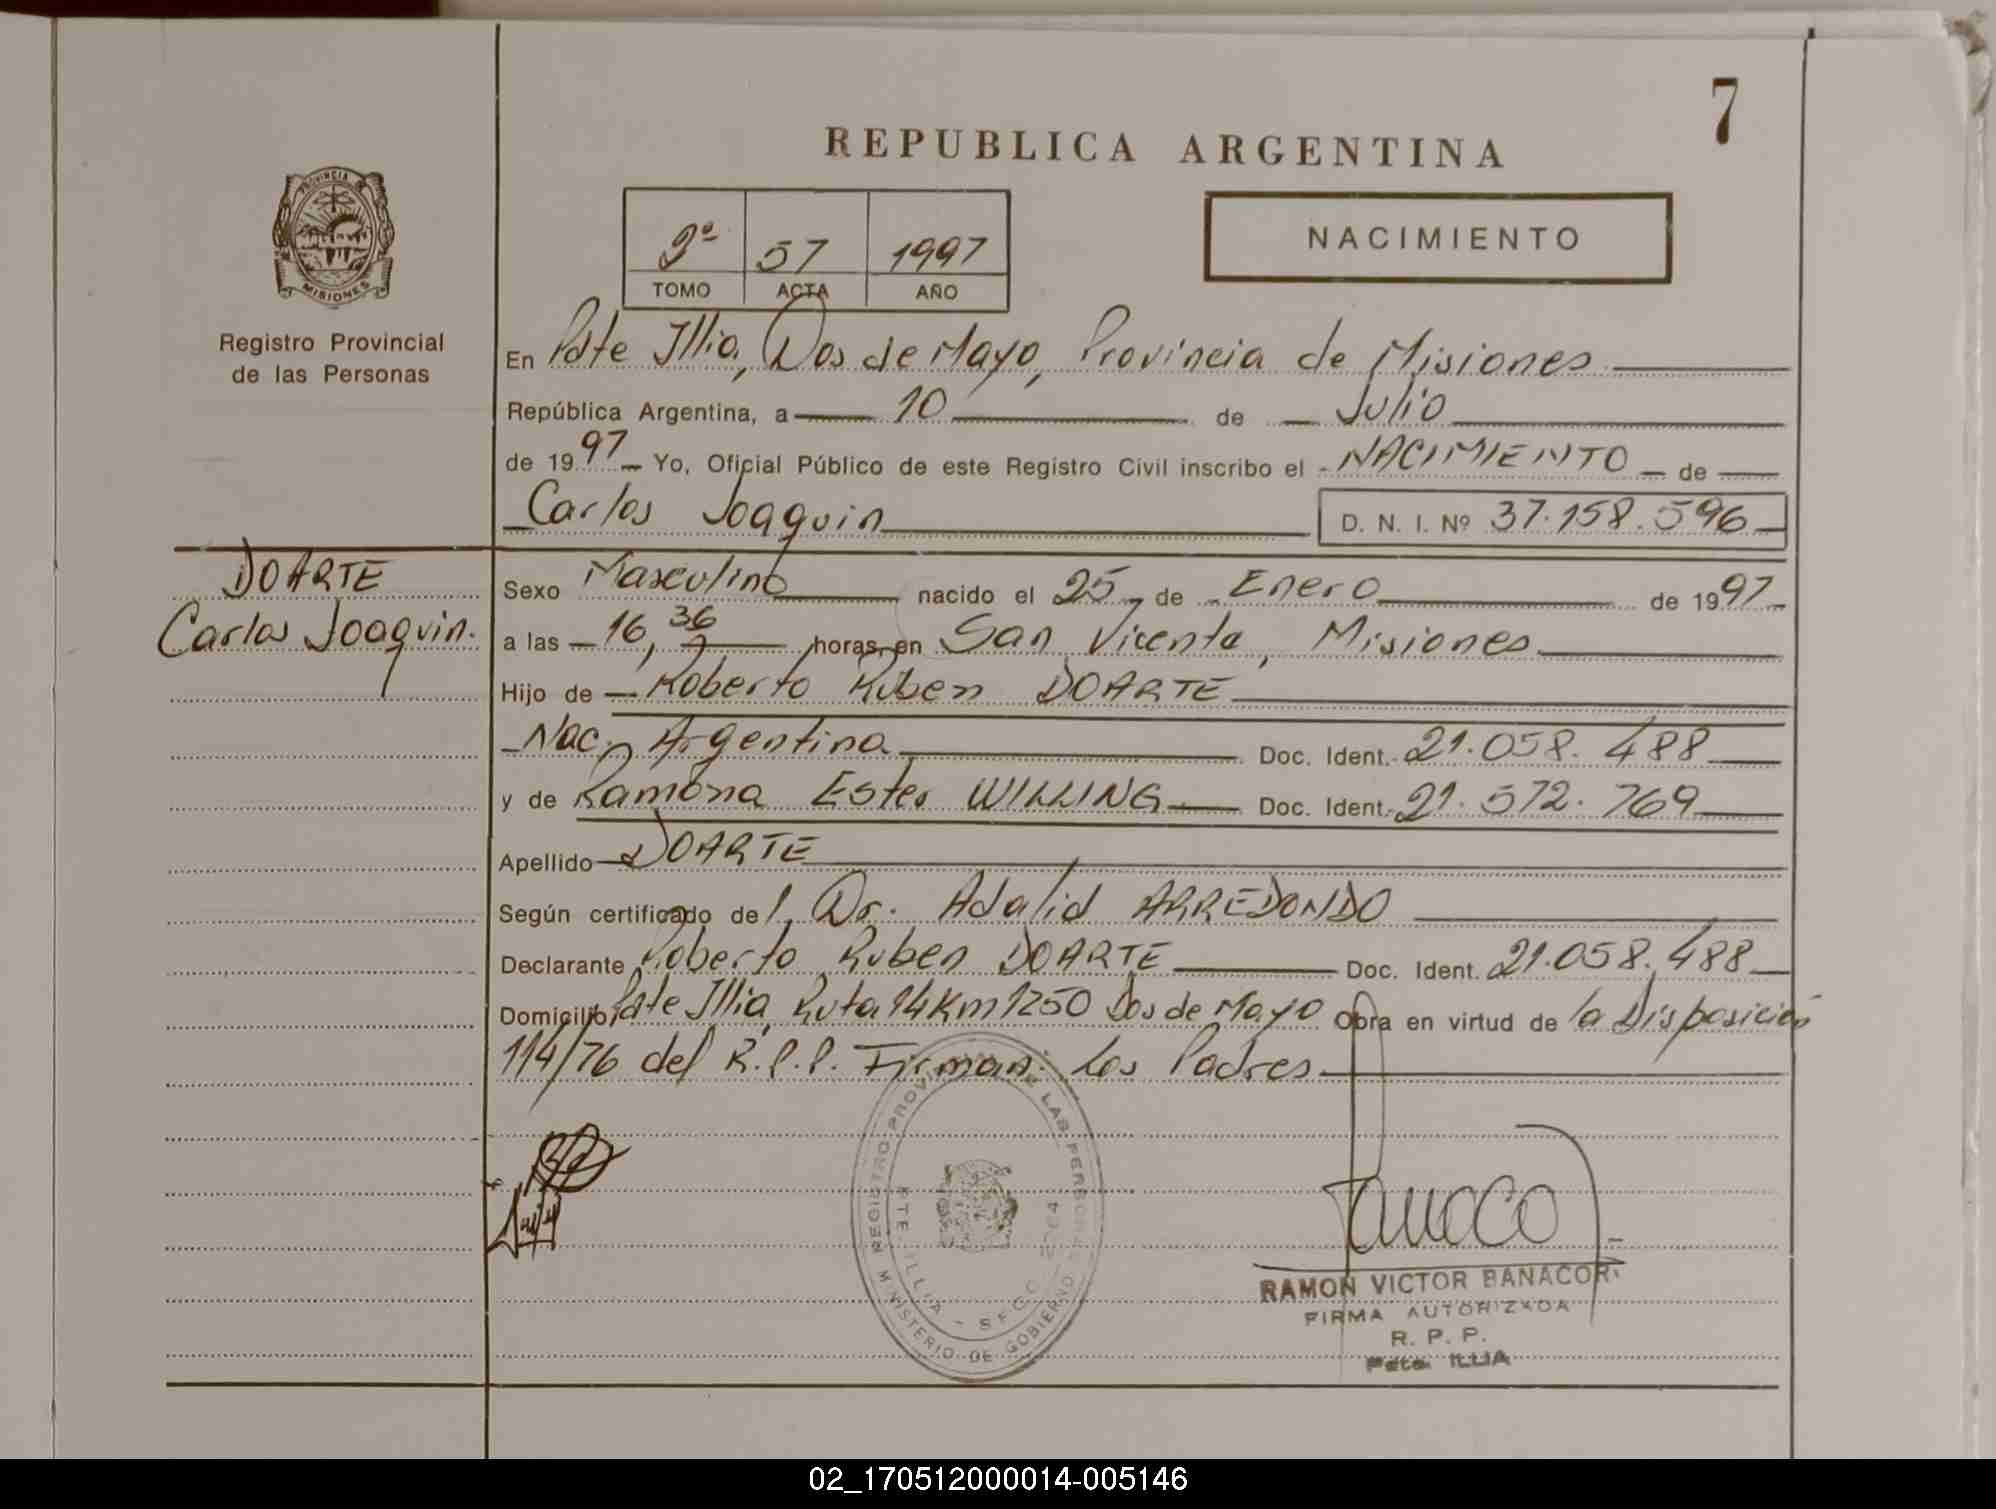 7
REPUBLICA ARGENTINA
PROVINCIA DE
MISIONES
Registro Provincial
de las Personas
2º 57 1997
TOMO ACTA AÑO
NACIMIENTO
En Pdte Illia, Dos de Mayo, Provincia de Misiones
República Argentina, a 10 de Julio
de 1997 Yo, Oficial Público de este Registro Civil inscribo el NACIMIENTO de
Carlos Joaquin D. N. I. Nº 37.158.596
DOARTE
Carlos Joaquin.
Sexo Masculino nacido el 25 de Enero de 1997
a las 16,36 horas, en San Vicente, Misiones
Hijo de Roberto Ruben DOARTE
Nac. Argentina Doc. Ident. 21.058.488
y de Ramona Ester WILLING Doc. Ident. 21.572.769
Apellido DOARTE
Según certificado del Dr. Adalid ARREDONDO
Declarante Roberto Ruben DOARTE Doc. Ident. 21.058.488
Domicilio Pdte Illia, Ruta 14 Km 1250 Dos de Mayo Obra en virtud de la Disposición
114/76 del R.P.P. Firman: Los Padres
REGISTRO PROVINCIAL DE LAS PERSONAS
MINISTERIO DE GOBIERNO
PTE. ILLIA
RAMON VICTOR BANACOR
FIRMA AUTORIZADA
R. P. P.
Pdte. ILLIA
02_170512000014-005146